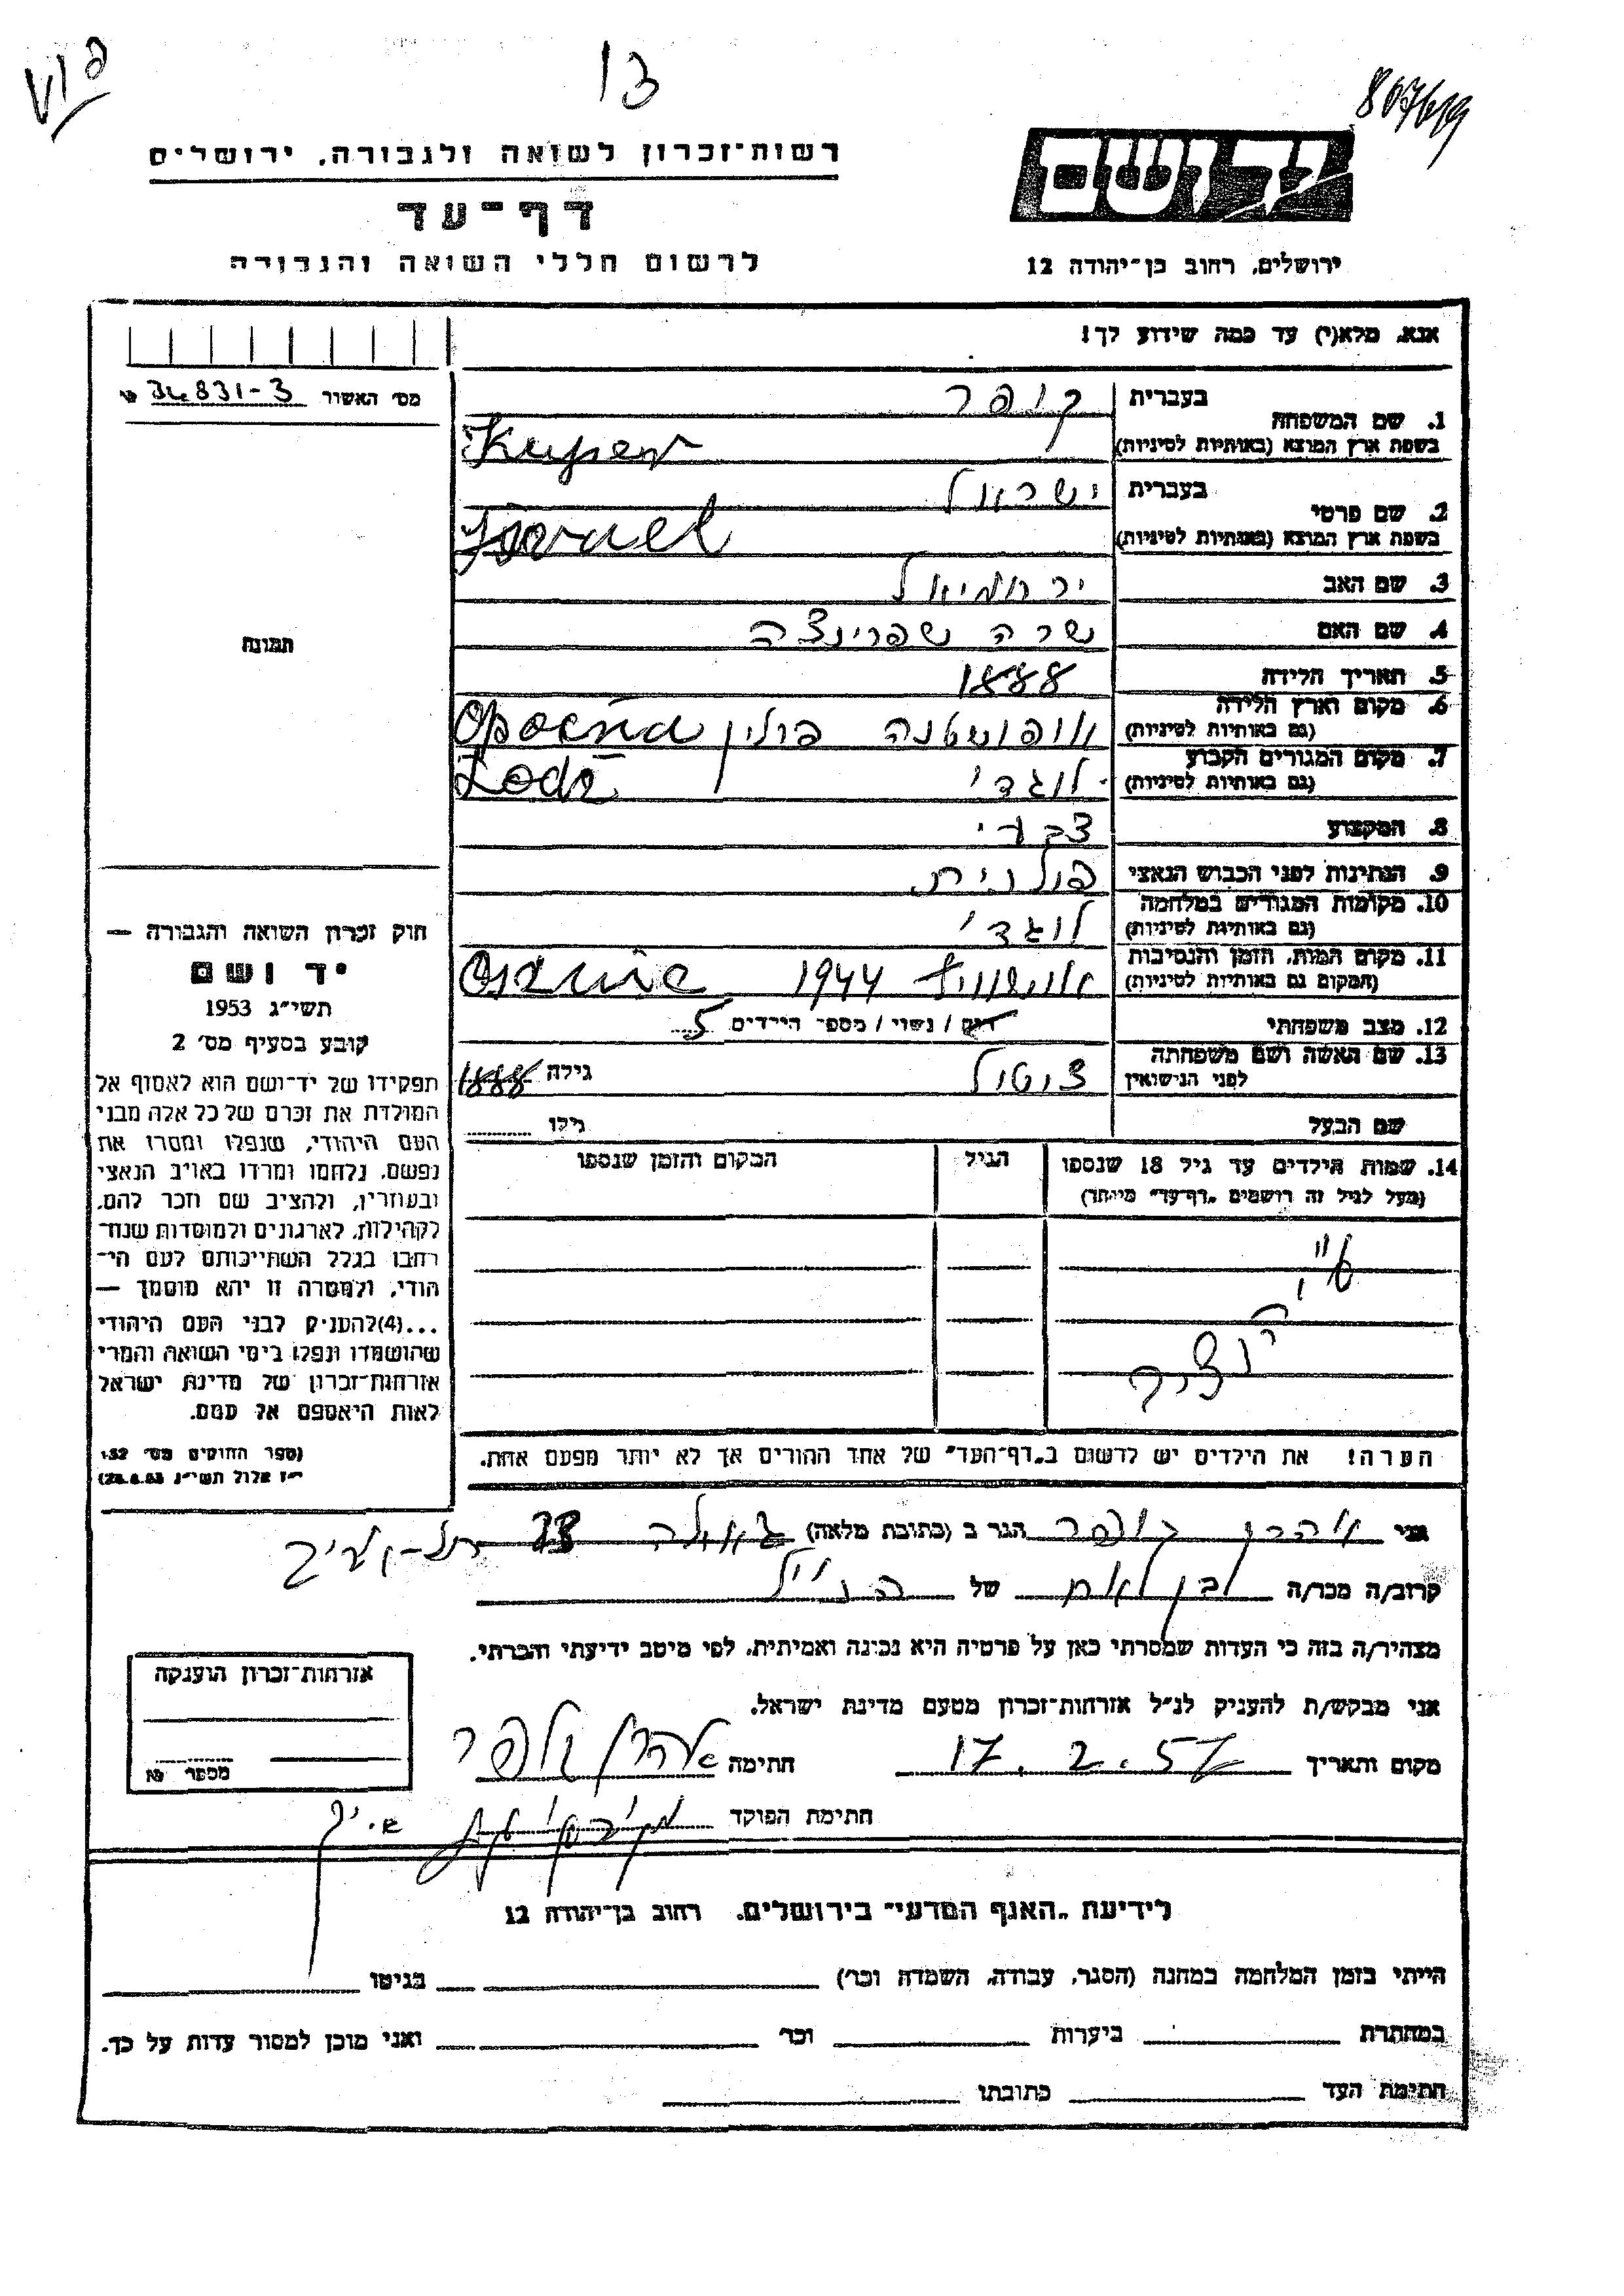 13
רשות־זכרון לשואה ולגבורה, ירושלים
דף־עד
לרשום חללי השואה והגבורה
יד ושם
ירושלים, רחוב בן־יהודה 12
אנא, מלא(י) עד כמה שידוע לך!
מס׳ האשור 34831-3
1. שם המשפחה
בעברית קופר
בשפת ארץ המוצא (באותיות לטיניות) Kuper
2. שם פרטי
בעברית ישראל
בשפת ארץ המוצא (באותיות לטיניות) Israel
3. שם האב ירחמיאל
4. שם האם שרה שפרינצה
5. תאריך הלידה 1888
6. מקום וארץ הלידה
(גם באותיות לטיניות) פולין
7. מקום המגורים הקבוע
(גם באותיות לטיניות) לודג׳ Lodz
8. המקצוע צבעי
9. הנתינות לפני הכבוש הנאצי פולנית
10. מקומות המגורים במלחמה
(גם באותיות לטיניות) לודג׳
11. מקום המות, הזמן והנסיבות
(המקום גם באותיות לטיניות) 1944
12. מצב משפחתי רווק / נשוי / מספר הילדים 5
13. שם האשה ושם משפחתה
לפני הנישואין גילה 1888
שם הבעל גילו
14. שמות הילדים עד גיל 18 שנספו
(מעל לגיל זה רושמים „דף־עד״ מיוחד)
הגיל
המקום והזמן שנספו
הערה! את הילדים יש לרשום ב„דף־העד״ של אחד ההורים אך לא יותר מפעם אחת.
תמונה
חוק זכרון השואה והגבורה —
יד ושם
תשי״ג 1953
קובע בסעיף מס׳ 2
תפקידו של יד־ושם הוא לאסוף אל
המולדת את זכרם של כל אלה מבני
העם היהודי, שנפלו ומסרו את
נפשם, נלחמו ומרדו באויב הנאצי
ובעוזריו, ולהציב שם וזכר להם,
לקהילות, לארגונים ולמוסדות שנח־
רבו בגלל השתייכותם לעם הי־
הודי, ולמטרה זו יהא מוסמך —
...(4) להעניק לבני העם היהודי
שהושמדו ונפלו בימי השואה והמרי
אזרחות־זכרון של מדינת ישראל
לאות היאספם אל עמם.
(ספר החוקים מס׳ 132
י״ז אלול תשי״ג 28.8.53)
אני אהרן קופר הגר ב (כתובת מלאה) גאולה 23 תל-אביב
קרוב/ה מכר/ה בן לאח של הנ״ל
מצהיר/ה בזה כי העדות שמסרתי כאן על פרטיה היא נכונה ואמיתית, לפי מיטב ידיעתי והכרתי.
אני מבקש/ת להעניק לנ״ל אזרחות־זכרון מטעם מדינת ישראל.
מקום ותאריך 17.2.57 חתימה אהרן קופר
חתימת הפוקד
אזרחות־זכרון הוענקה
מספר №
לידיעת „האגף המדעי״ בירושלים, רחוב בן־יהודה 12
הייתי בזמן המלחמה במחנה (הסגר, עבודה, השמדה וכר׳) בגיטו
במחתרת ביערות וכר׳ ואני מוכן למסור עדות על כך.
חתימת העד כתובתו